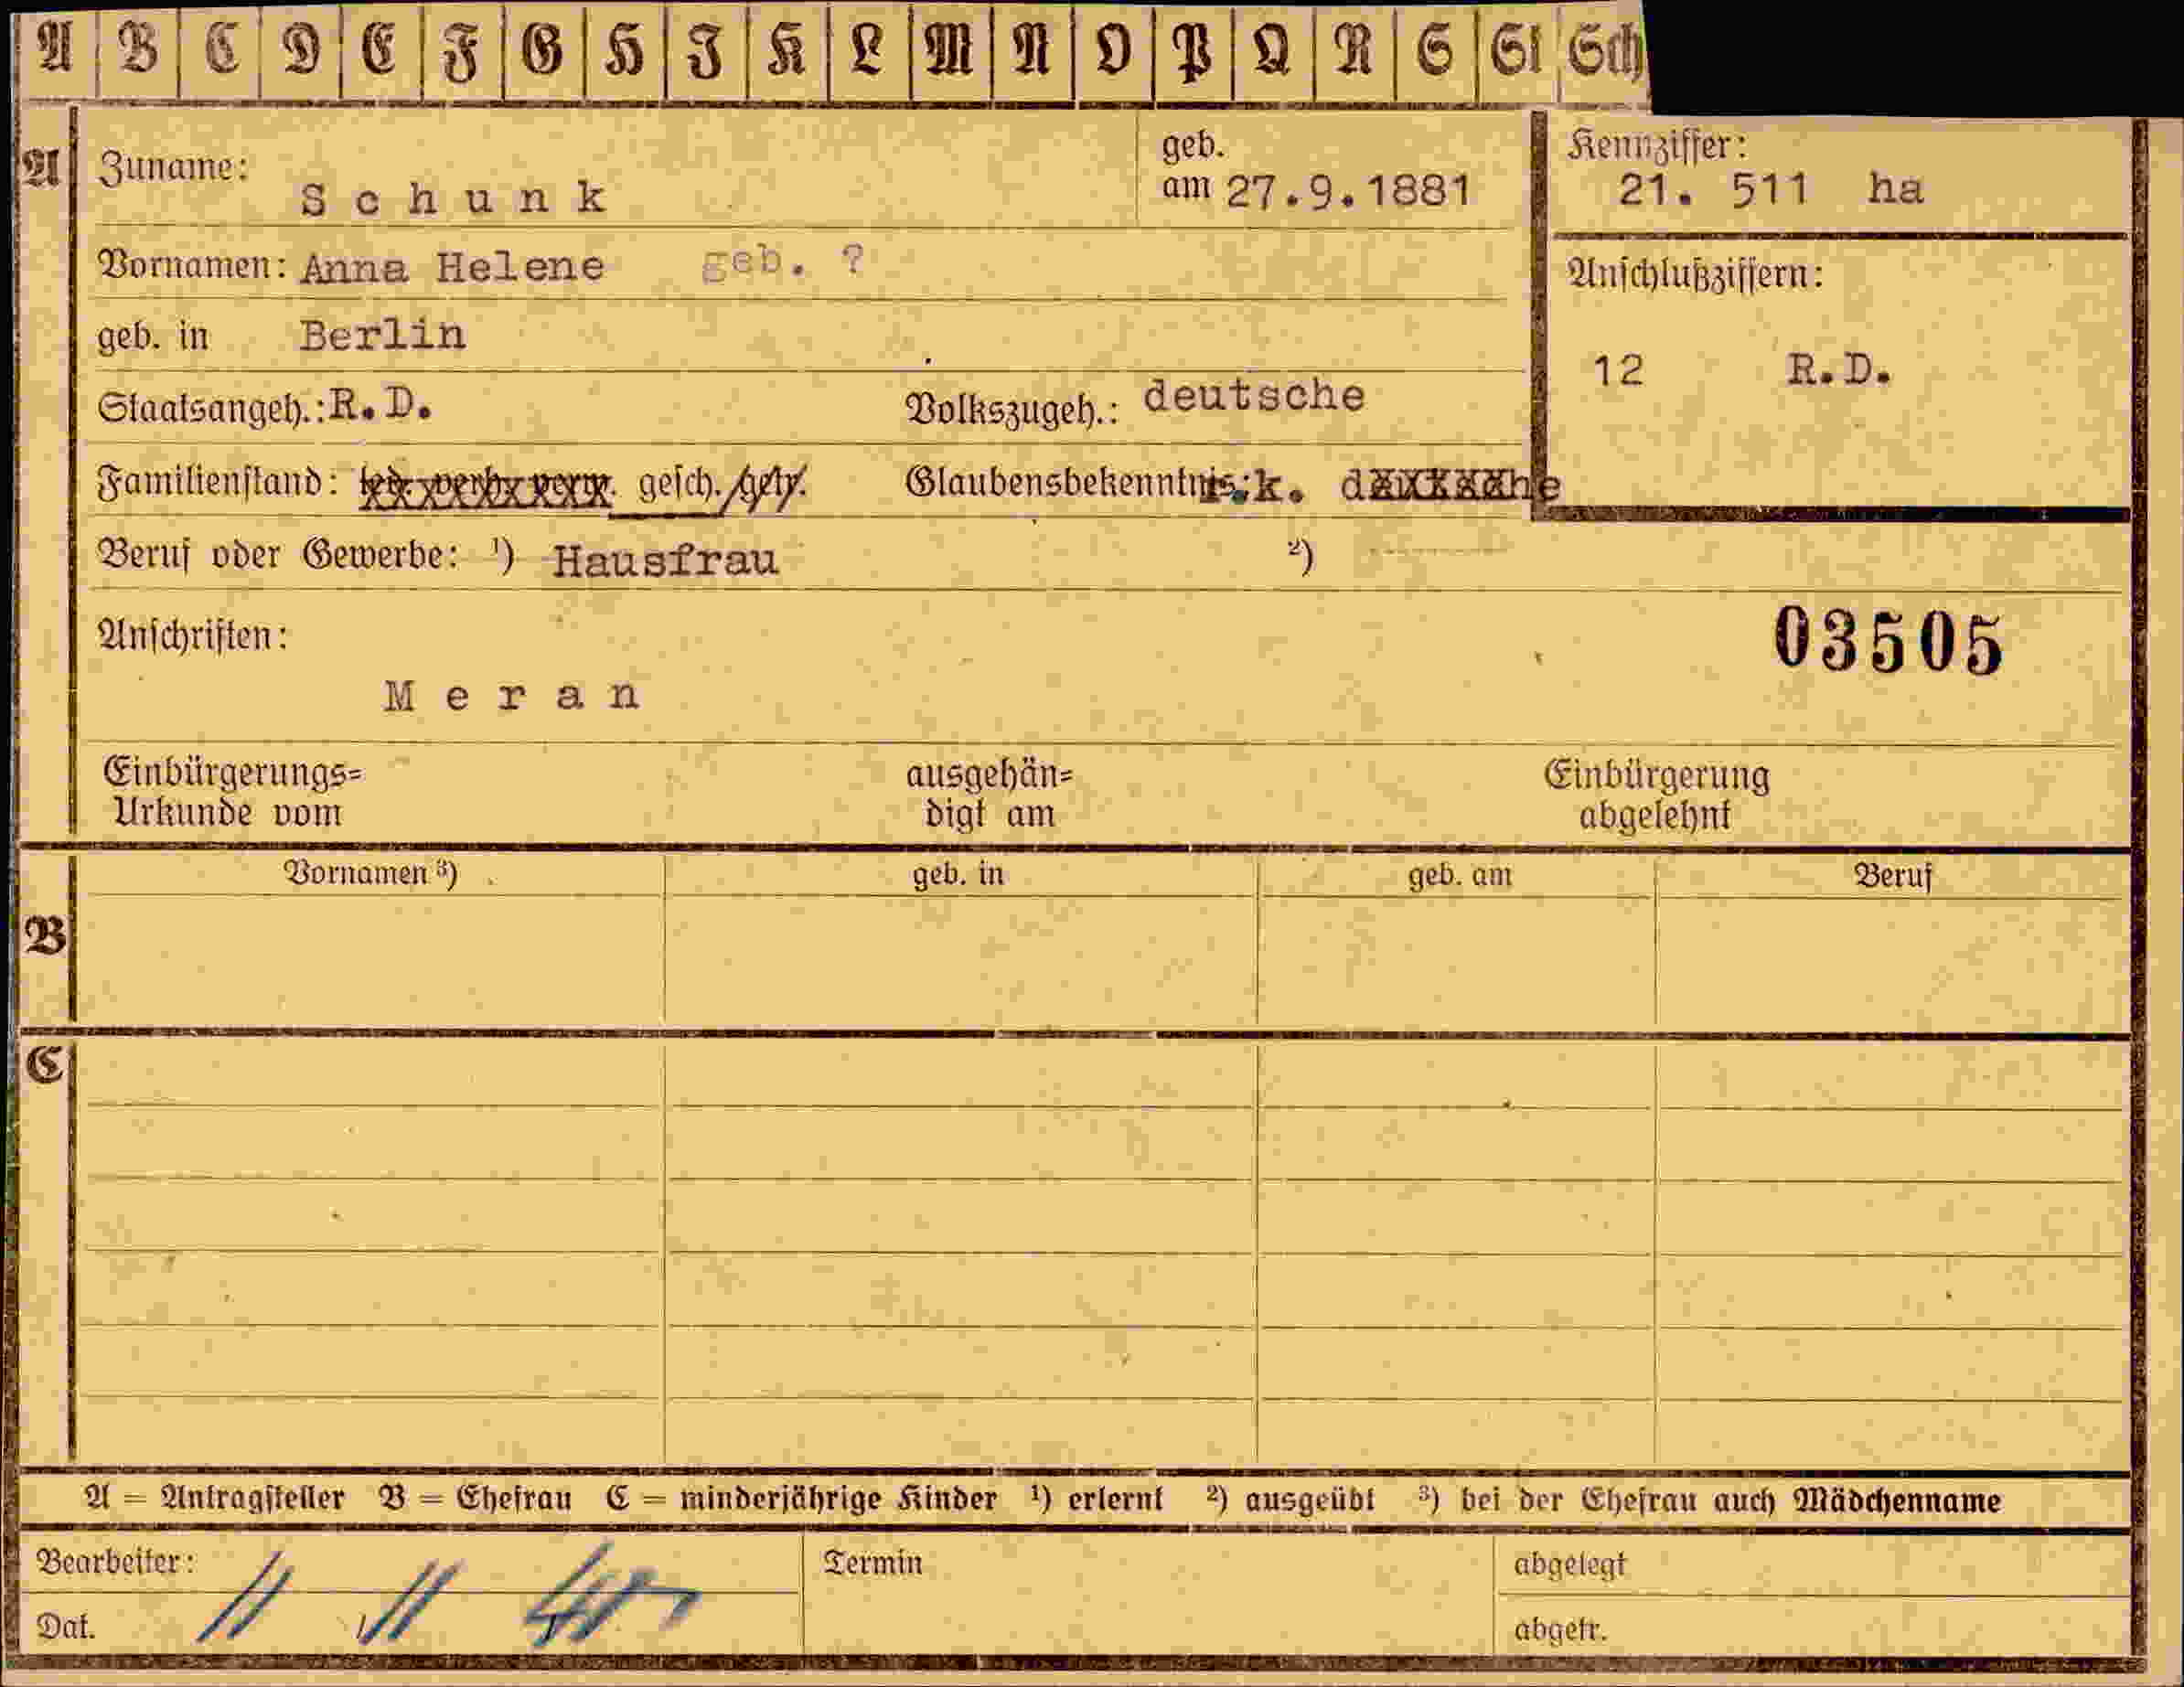 A B C D E F G H J K L M N O P Q R S St Sch
A
Zuname: Schunk
geb. am 27.9.1881
Kennziffer: 21. 511 ha
Vornamen: Anna Helene geb. ?
Anschlußziffern:
12 R.D.
geb. in Berlin
Staatsangeh.: R.D. Volkszugeh.: deutsche
Familienstand: led. verh. verw. gesch. /getr. Glaubensbekenntnis: k.
Beruf oder Gewerbe: ¹) Hausfrau ²)
Anschriften:
03505
Meran
Einbürgerungs=
Urkunde vom
ausgehän=
digt am
Einbürgerung
abgelehnt
B
Vornamen ³) geb. in geb. am Beruf
C
A = Antragsteller B = Ehefrau C = minderjährige Kinder ¹) erlernt ²) ausgeübt ³) bei der Ehefrau auch Mädchenname
Bearbeiter: Termin abgelegt
Dat. abgetr.